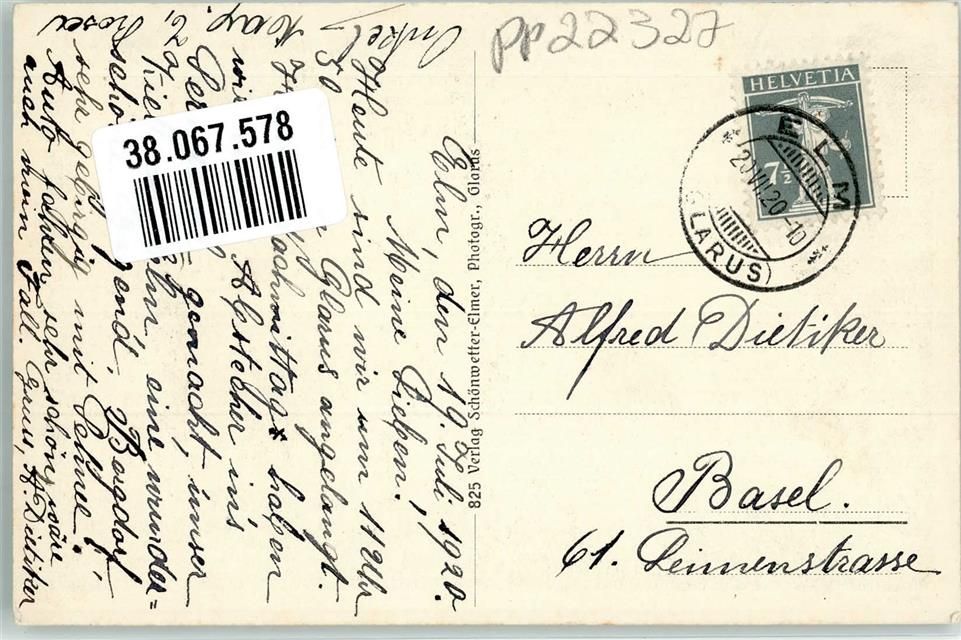 pp22327
38.067.578
HELVETIA
7½
ELM
20.VII.20.-10
(GLARUS)
Herrn
Alfred Dietiker
Basel.
61. Leimenstrasse
825 Verlag Schönwetter-Elmer, Photogr., Glarus
Elm, den 19. Juli 1920.
Meine Lieben!
Heute sind wir um 11 Uhr
50 Glarus angelangt.
nachmittag haben
wir Abstecher ins
gemacht, unser
Ziel Elm, eine wunder=
schöne Gegend,
sehr gebirgig mit
Auto fahren sehr schön, wäre
auch mein Fall. Gruss, H. Dietiker
Onkel